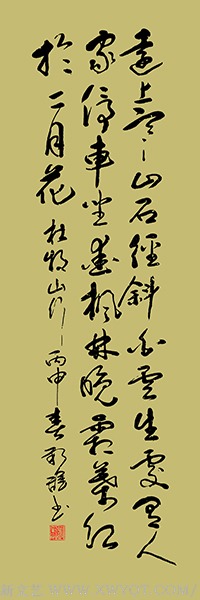 遠上寒山石徑斜白雲生處有人
家停車坐愛楓林晚霜葉紅
於二月花 杜牧山行 丙申春書